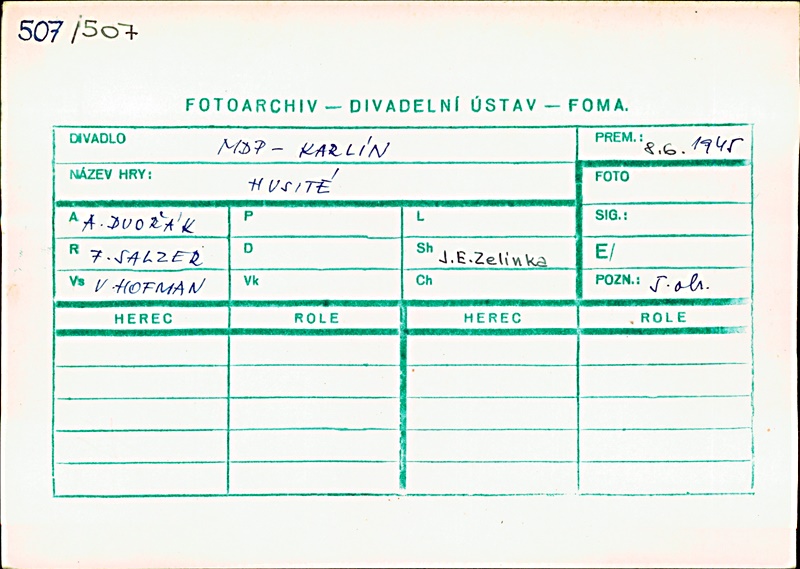 507/507
FOTOARCHIV — DIVADELNÍ ÚSTAV — FOMA.
DIVADLO MDP - KARLÍN PREM.: 8.6.1945
NÁZEV HRY: HUSITÉ FOTO
A A. DVOŘÁK P L SIG.:
R F. SALZER D Sh J.E.Zelinka E/
Vs V. HOFMAN Vk Ch POZN.: 5 obr.
HEREC ROLE HEREC ROLE